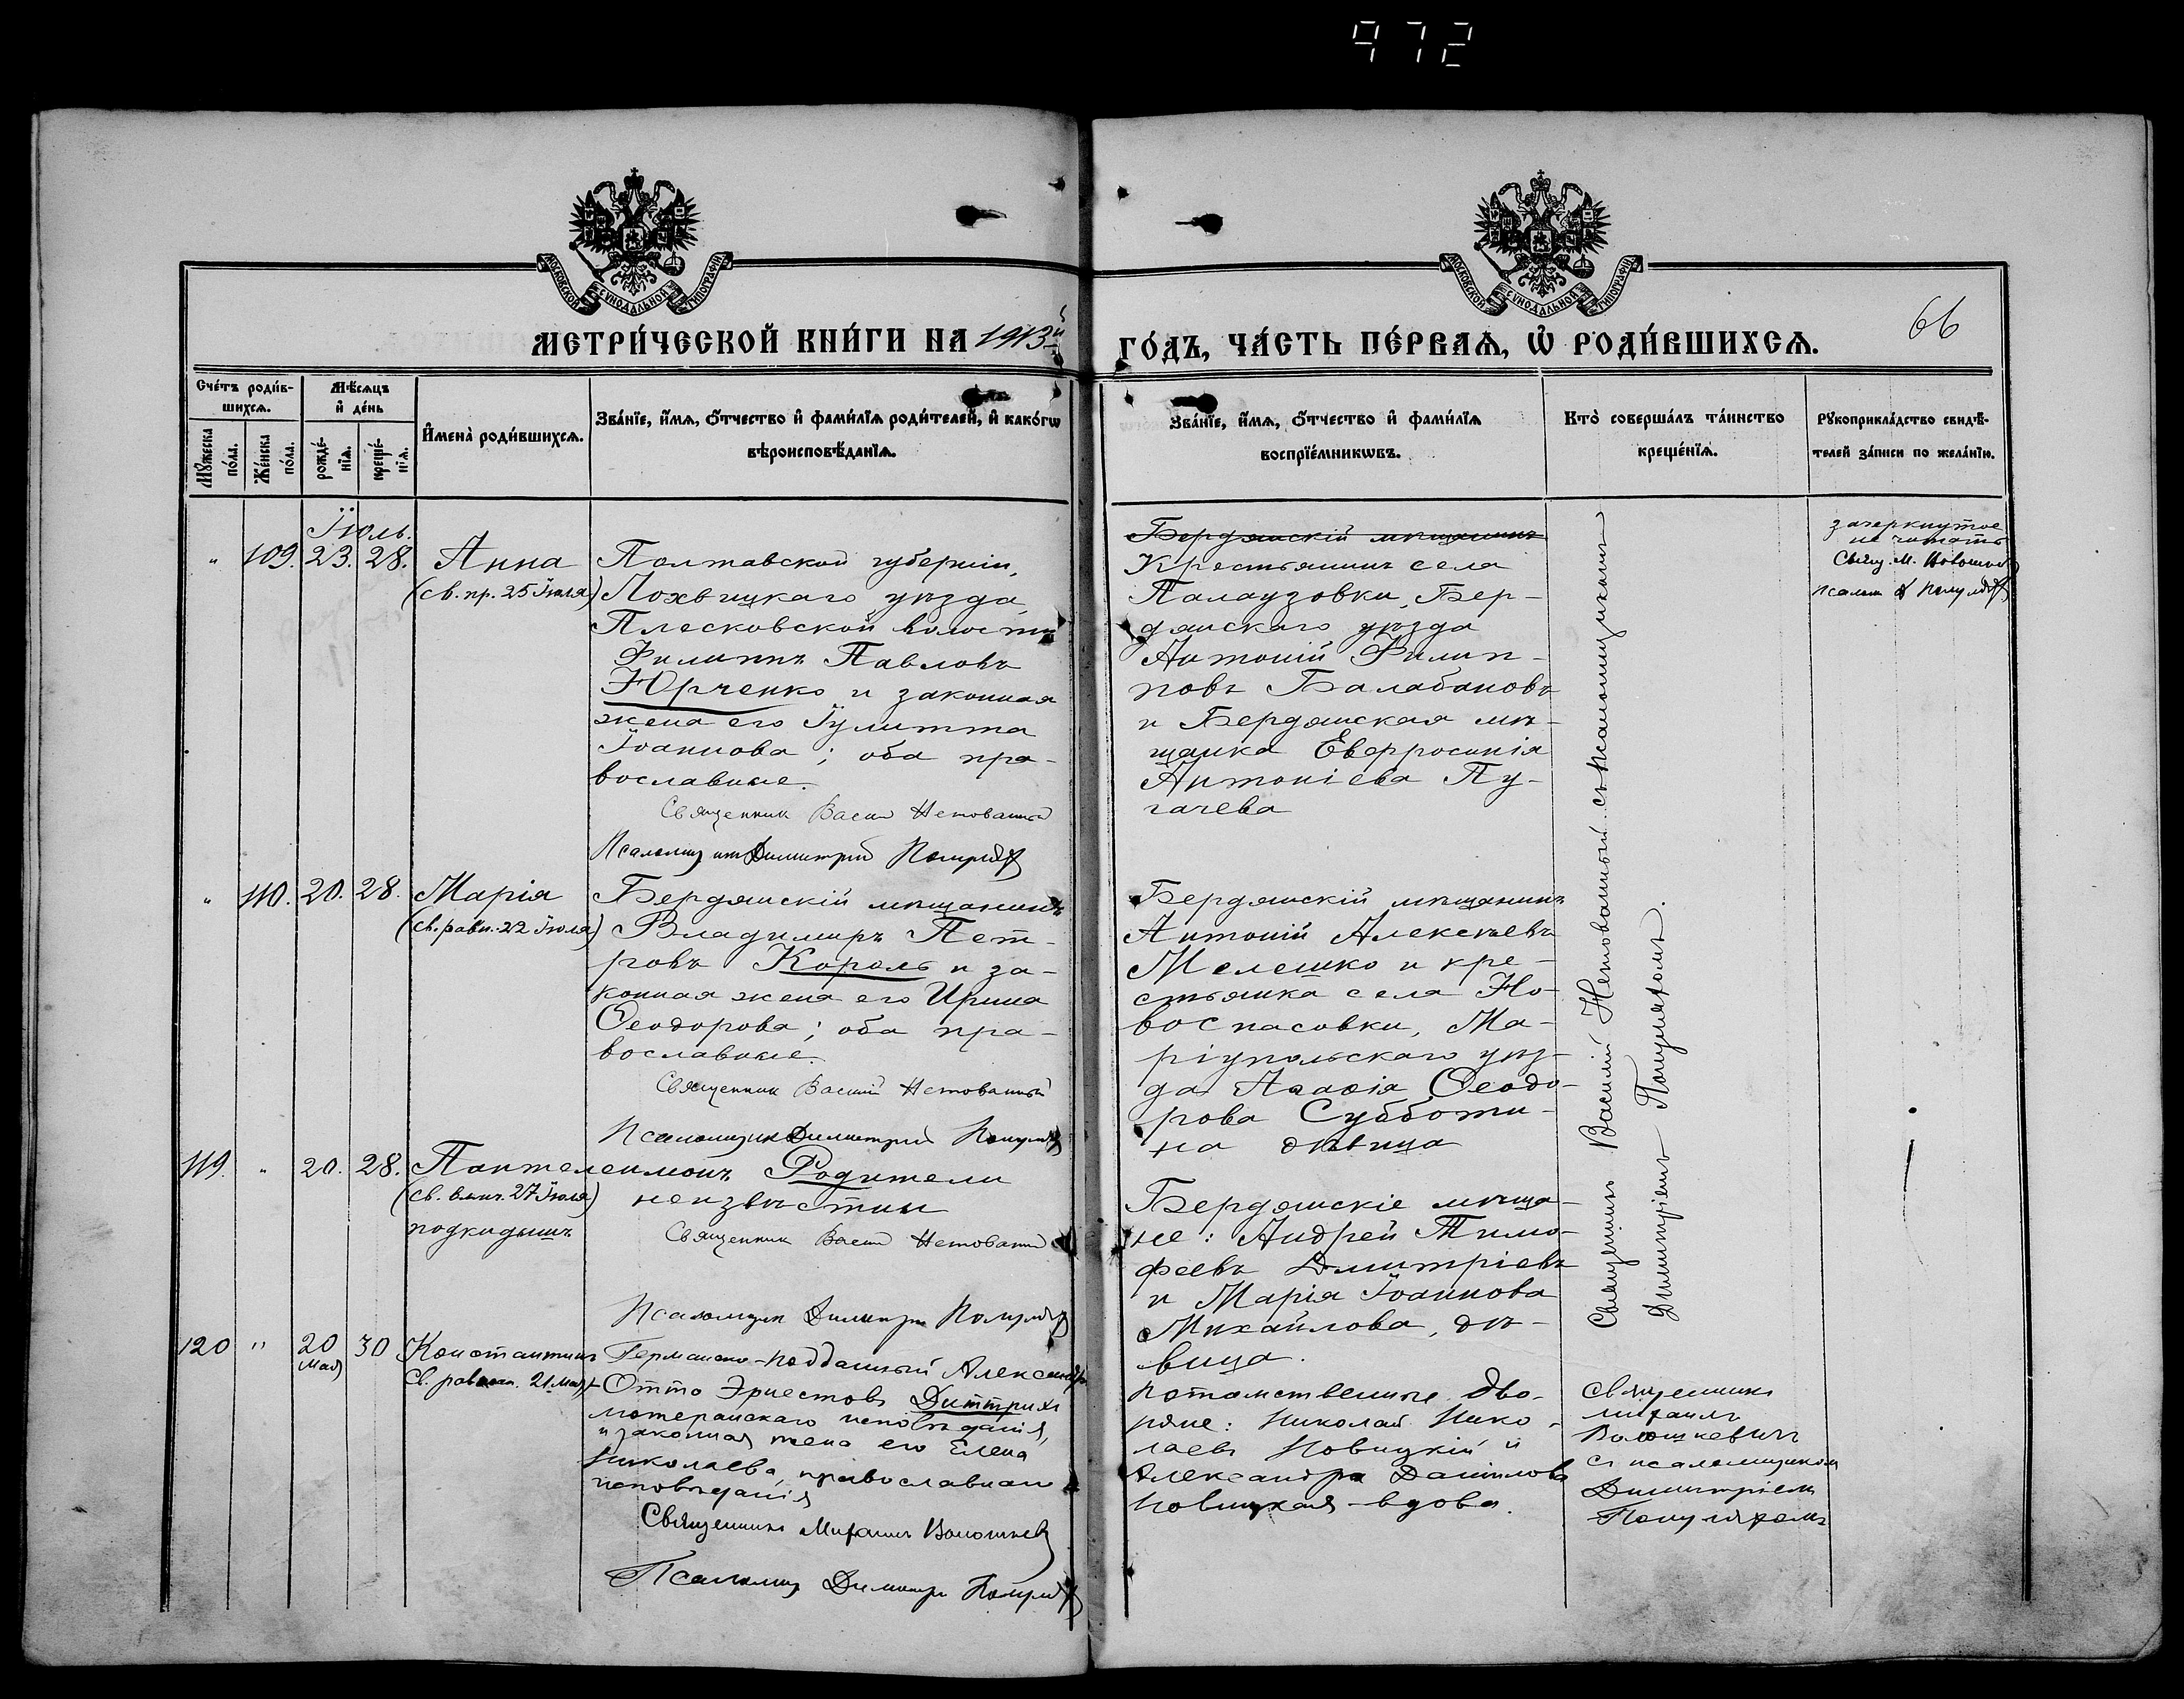 972
МОСКОВСКОЙ СѴНОДАЛЬНОЙ ТИПОГРАФІИ
МОСКОВСКОЙ СѴНОДАЛЬНОЙ ТИПОГРАФІИ
МЕТРИ́ЧЕСКОЙ КНИ́ГИ НА 1913й
ГО́ДЪ, ЧА́СТЬ ПЕ́РВАѦ, Ѡ РОДИ́ВШИХСѦ.
66
Сче́тъ роди́в-
шихсѧ.
Мѣ́сѧцъ
и҆ де́нь
Мꙋ́жеска
по́ла.
Же́нска
по́ла.
рожде́-
нїѧ.
креще́-
нїѧ.
И҆мена̀ роди́вшихсѧ.
Зва́нїе, и҆́мѧ, ѻ҆́тчество и҆ фами́лїѧ роди́телей, и҆ како́гѡ
вѣроисповѣ́данїѧ.
Зва́нїе, и҆́мѧ, ѻ҆́тчество и҆ фами́лїѧ
воспрїе́мникѡвъ.
Кто̀ соверша́лъ та́инство
креще́нїѧ.
Рꙋкоприкла́дство свидѣ́-
телей за́писи по жела́нїю.
Іюль.
" 109. 23. 28. Анна
(св. пр. 25 Іюля)
Полтавской губерніи,
Лохвицкаго уѣзда,
Плесковской волости
Филиппъ Павловъ
Юрченко и законная
жена его Іулитта
Іоаннова; оба пра-
вославные.
Священник Васил Нетованный
Псаломщикъ Димитрій
Бердянскій мѣщанинъ
Крестьянинъ села
Палаузовки, Бер-
дянскаго уѣзда
Антоній Филип-
повъ Балабановъ
и Бердянская мѣ-
щанка Евфросинія
Антоніева Пу-
гачева
зачеркнутое
не читать
Свящ. М.
псалом
" 110. 20. 28. Марія
(св. равн. 22 Іюля)
Бердянскій мѣщанинъ
Владимиръ Пет-
ровъ Король и за-
конная жена его Ирина
Ѳеодорова; оба пра-
вославные.
Священник Васил Нетованный
Псаломщик Димитрій
Бердянскій мѣщанинъ
Антоній Алексѣевъ
Мелешко и кре-
стьянка села Но-
воспасовки, Ма-
ріупольскаго уѣз-
да Ѳеодо-
рова Субботи-
на дѣвица
119. " 20. 28. Пантелеимонъ
(св. влмч. 27 Іюля)
подкидышъ
Родители
неизвѣстны
Священник Васил Нетованный
Псаломщик Димитрій
Бердянскіе мѣща-
не: Андрей Тимо-
феевъ Дмитріевъ
и Марія Іоаннова
Михайлова, дѣ-
вица.
Священникъ Василій Нетованный съ псаломщикомъ
Димитріемъ
120 " 20 Мая 30 Константинъ
Св. равноап. 21 Мая
Германско-подданный Александръ
Отто Эрнестовъ Диттрихъ
лютеранскаго исповѣданія,
и законная жена его Елена
Николаева, православнаго
исповѣданія
Священникъ Михаилъ
Псаломщ Димитрій
потомственные дво-
ряне: Николай Нико-
лаевъ Новицкій и
Александра Даніилова
Новицкая - вдова.
Священникъ
Михаилъ
съ псаломщикомъ
Димитріемъ